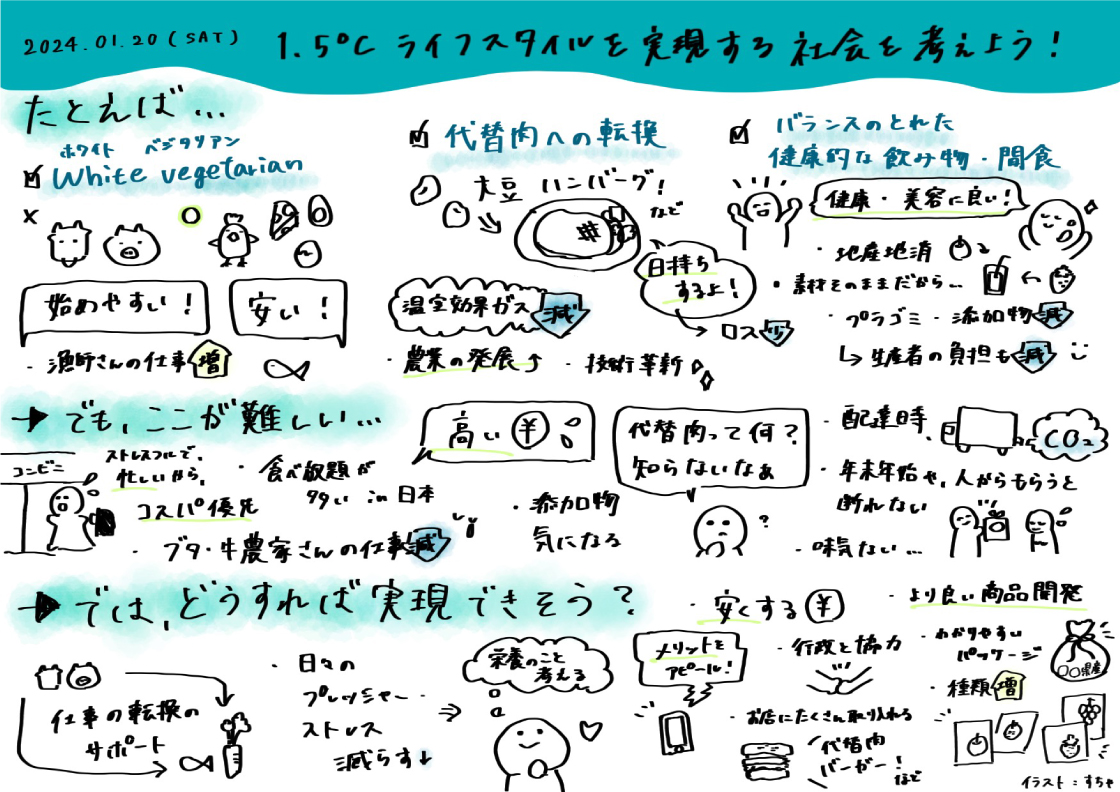 2024.01.20 (SAT)
1.5℃ ライフスタイルを実現する社会を考えよう!
たとえば...
ホワイト ベジタリアン
White vegetarian
x
始めやすい!
安い!
・漁師さんの仕事増
代替肉への転換
大豆ハンバーグ!
など
日持ち
するよ!
→ロス少
温室効果ガス減
・農業の発展↑
・技術革新
バランスのとれた
健康的な飲み物・間食
健康・美容に良い!
・地産地消
・素材そのままだから...
・プラゴミ・添加物減
↳生産者の負担も減
→でも、ここが難しい...
コンビニ
ストレスフルで、
忙しいから、
コスパ優先
・食べ放題が
多い in 日本
・ブタ・牛農家さんの仕事減
高い¥
・添加物
気になる
代替肉って何?
知らないなぁ
?
・配達時、
CO2
・年末年始や、人からもらうと
断れない
・味気ない...
→では、どうすれば実現できそう?
仕事の転換の
サポート
・日々の
プレッシャー・
ストレス
減らす↓
⇒
栄養のこと
考える
・安くする¥
メリットを
アピール!
・行政と協力
・お店にたくさん取り入れる
代替肉
バーガー!
など
・より良い商品開発
・わかりやすい
パッケージ
〇〇県産
・種類増
イラスト:すちゃ